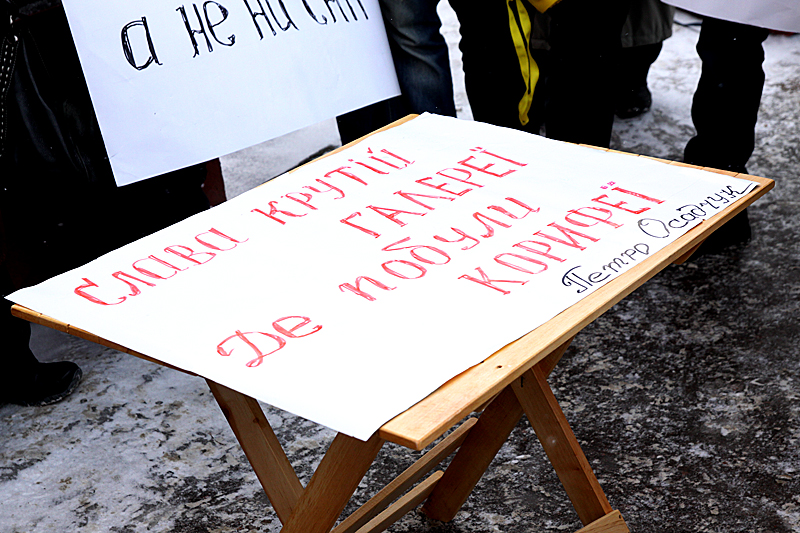 а не ни
СЛАВА КРУТІЙ
ГАЛЕРЕЇ
Де побули
КОРИФЕЇ
Петро Осадчук